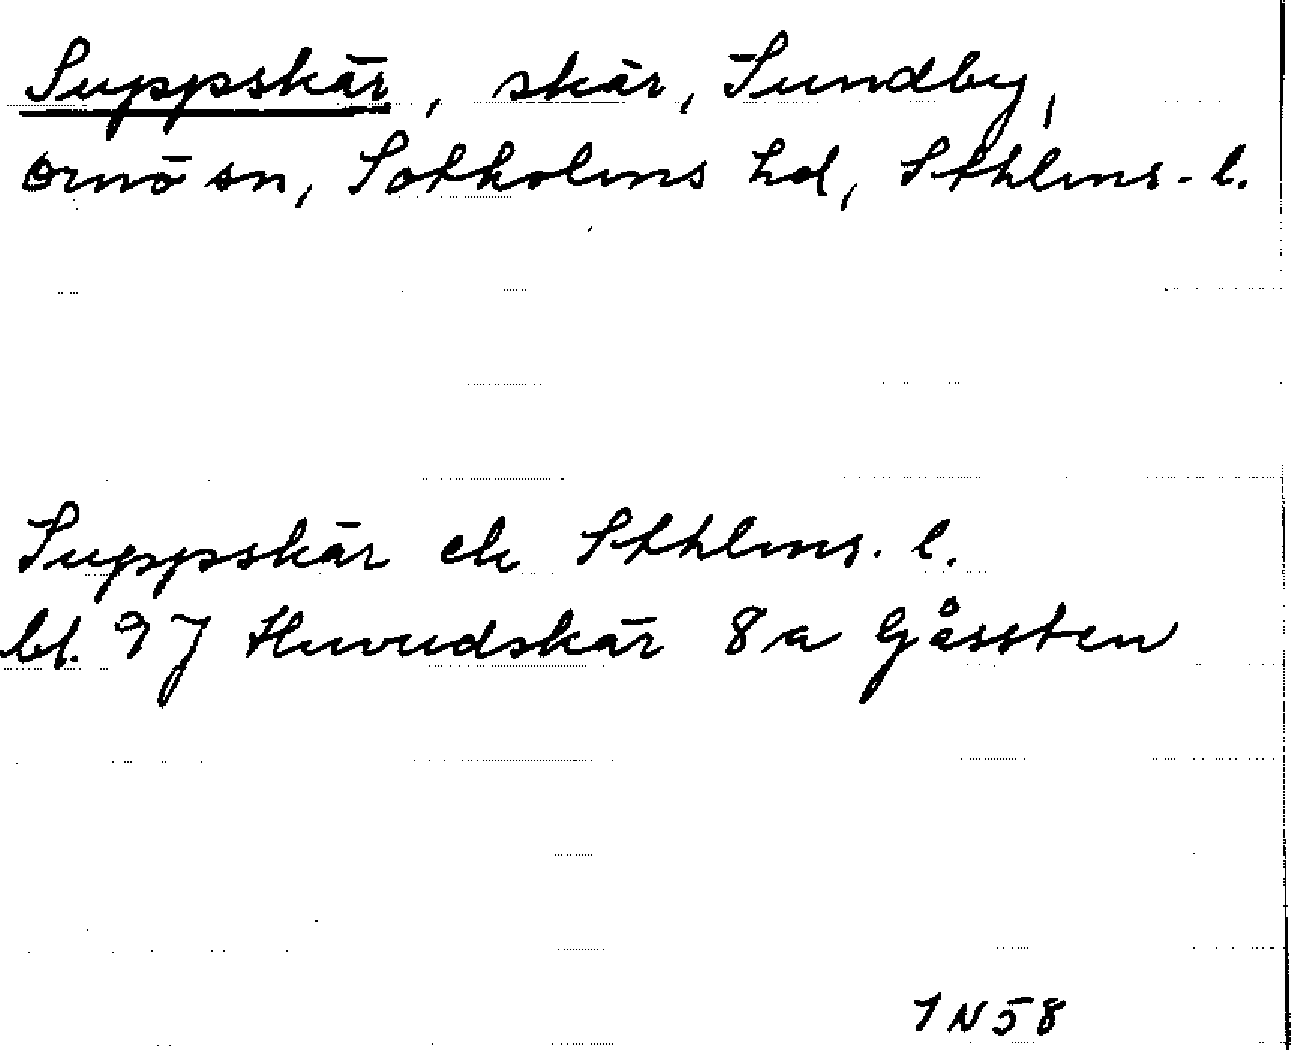 Suppskär, skär, Sundby,
Ornö sn, Sotholms hd, Sthlms-l.
Suppskär ek Sthlms. l.
bl. 97 Huvudskär 8a Gåssten
IN58